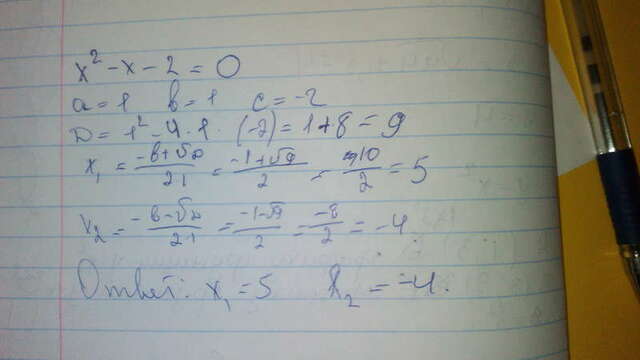 x² - x - 2 = 0
a = 1 b = 1 c = -2
D = 1² - 4 · 1 · (-2) = 1 + 8 = 9
x₁ = (-b+√D)/21 = (-1+√9)/2 = 10/2 = 5
x₂ = (-b-√D)/21 = (-1-√9)/2 = -8/2 = -4
Ответ: x₁ = 5 x₂ = -4.